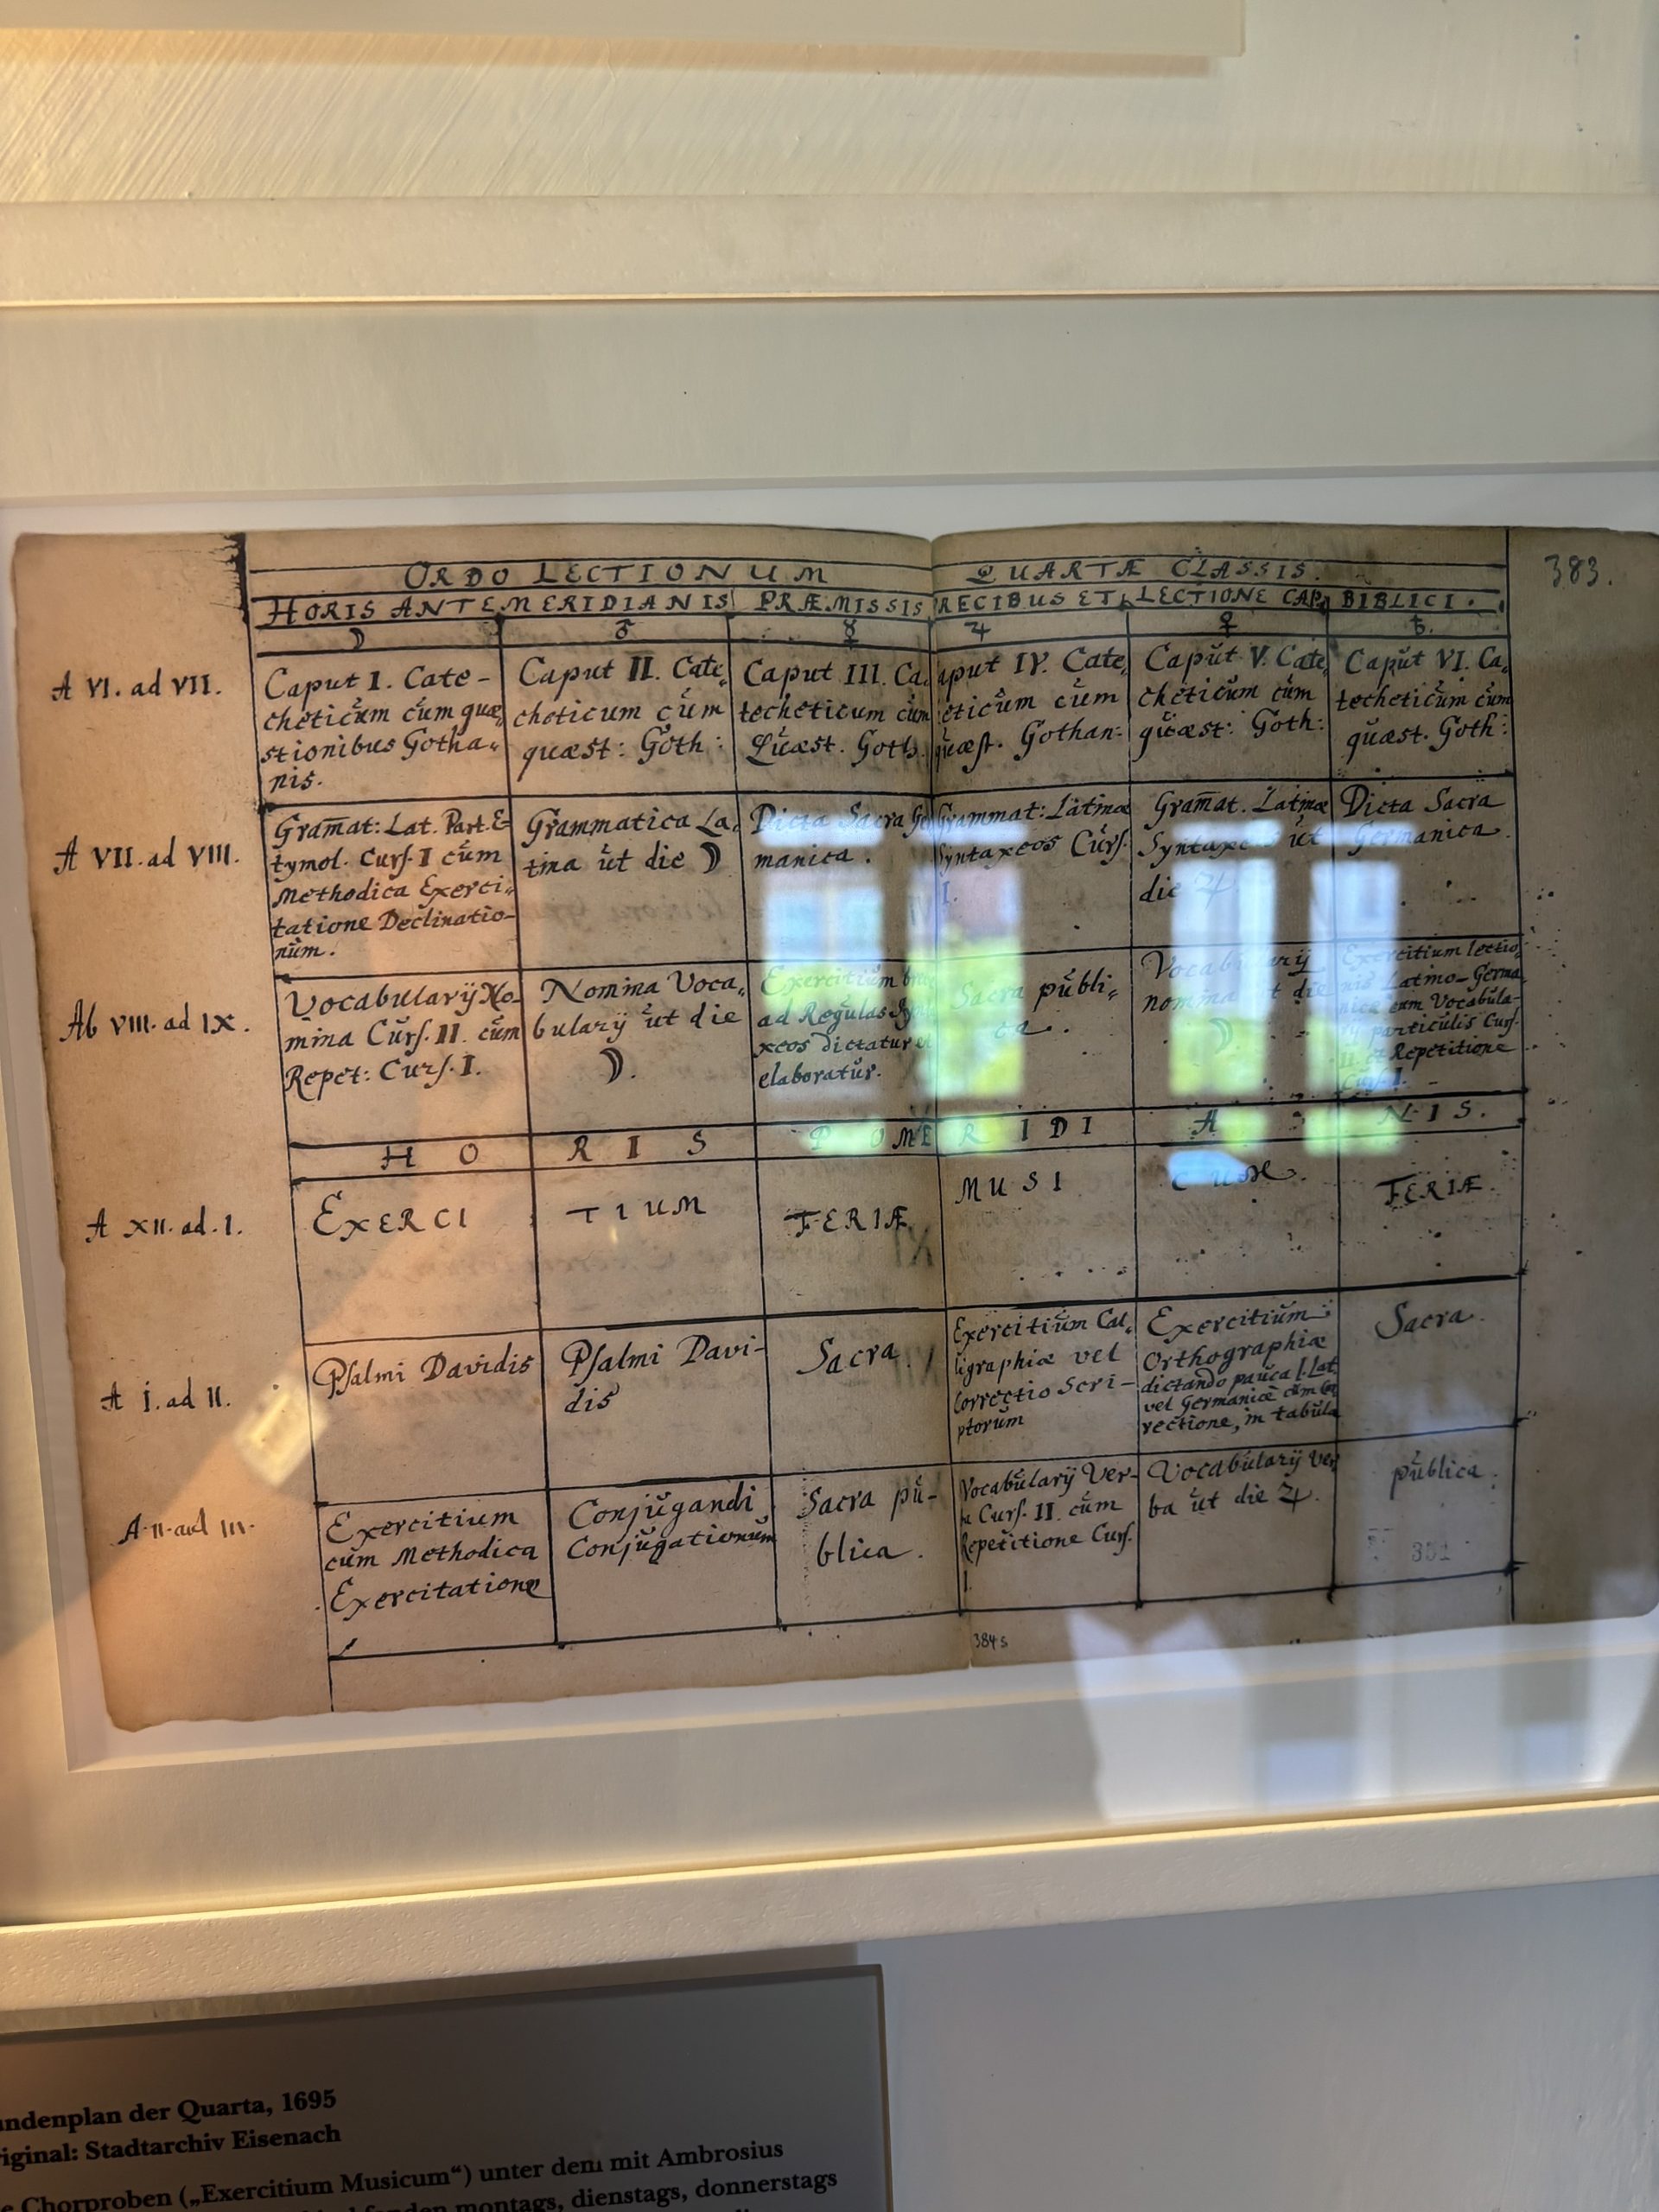 ORDO LECTIONUM QUARTÆ CLASSIS.
383.
HORIS ANTEMERIDIANIS PRÆMISSIS RECIBUS ET LECTIONE CAP. BIBLICI.
☽ ♂ ☿ ♃ ♀ ♄.
A VI. ad VII.
Caput I. Cate-
cheticŭm cŭm quæ„
stionibus Gotha„
nis.
Caput II. Cate„
cheticum cŭm
quæst: Goth:
Caput III. Ca„
techeticum cŭm
Quæst. Goth.
aput IV. Cate„
eticŭm cŭm
quæst. Gothan:
Capŭt V. Cate„
cheticŭm cŭm
qŭæst: Goth:
Capŭt VI. Ca„
techeticŭm cŭm
qŭæst. Goth:
A VII. ad VIII.
Gram̄at: Lat. Part. E-
tymol. Curs. I cŭm
Methodica Exerci„
tatione Declinatio-
nŭm.
Grammatica La„
tina ŭt die ☽
Dicta Sacra Ger
manica.
Grammat: Latinæ
Syntaxeos Cŭrs.
I.
Gram̄at. Latinæ
Syntaxeos ŭt
die ♃
Dicta Sacra
Germanica.
Ab VIII. ad IX.
Vocabularÿ No-
mina Cŭrs. II. cŭm
Repet: Curs. I.
Nomina Voca„
bularÿ ŭt die
☽.
Exercitiŭm
ad Regŭlas
xeos dictatur
elaboratŭr.
Sacra pŭbli„
ca.
Vocabularÿ
nomina ŭt die
☽
Exercitium lectio„
nis Latino-Germa„
nicæ cum Vocabula-
rÿ particulis Curs.
II. et Repetitione
Curs. I.
HORIS POMERIDIANIS.
A XII. ad. I.
EXERCI
TIUM
FERIÆ
MUSI
CUM.
FERIÆ.
A I. ad II.
Psalmi Davidis
Psalmi Davi-
dis
Sacra.
Exercitiŭm Cal„
ligraphiæ vel
Correctio Scri-
ptorŭm
Exercitiŭm
Orthographiæ
dictando paŭca l. Lat.
vel Germanicè cŭm cor
rectione, in tabŭla
Sacra.
A II. ad III.
Exercitium
cŭm Methodica
Exercitatione
Conjŭgandi
Conjŭgationŭm
Sacra pŭ-
blica.
Vocabŭlarÿ Ver-
ba Curs. II. cŭm
Repetitione Curs.
I.
Vocabŭlarÿ Ver
ba ŭt die ♃.
pŭblica.
331
384 s
undenplan der Quarta, 1695
riginal: Stadtarchiv Eisenach
e Chorproben („Exercitium Musicum“) unter dem mit Ambrosius
fanden montags, dienstags, donnerstags